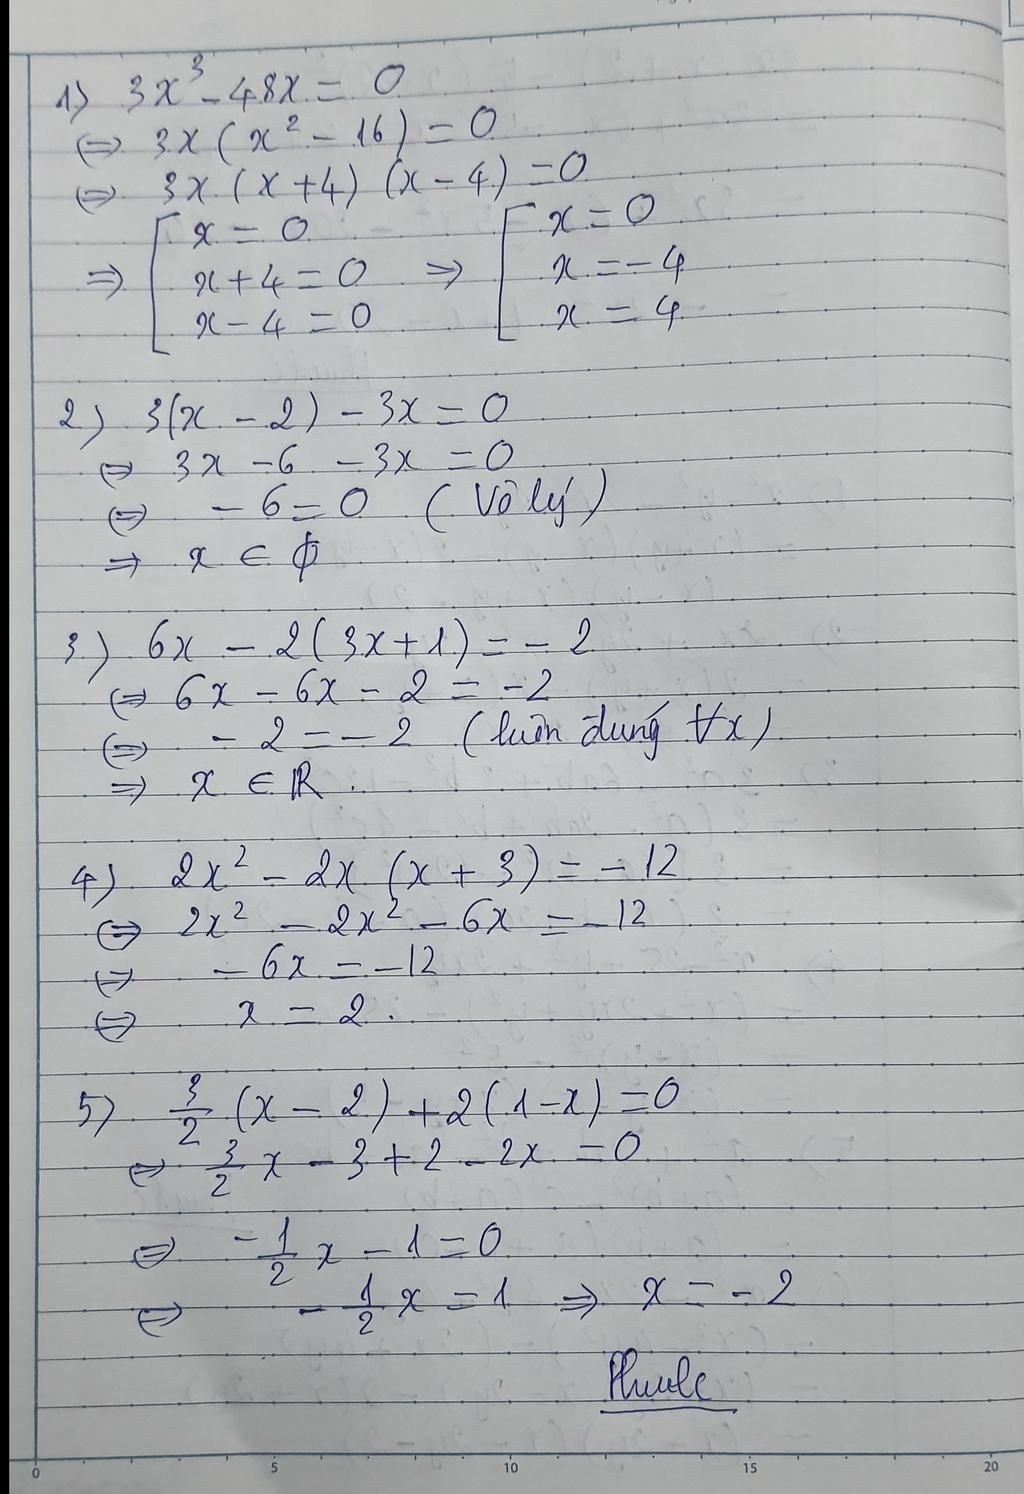 1) 3x³ - 48x = 0
⇔ 3x(x² - 16) = 0
⇔ 3x(x+4)(x-4) = 0
⇒ [ x = 0 ; x+4 = 0 ; x-4 = 0 ⇒ [ x = 0 ; x = -4 ; x = 4
2) 3(x - 2) - 3x = 0
⇔ 3x - 6 - 3x = 0
⇔ - 6 = 0 (Vô lý)
⇒ x ∈ ϕ
3) 6x - 2(3x+1) = - 2
⇔ 6x - 6x - 2 = -2
⇔ - 2 = - 2 (luôn đúng ∀x)
⇒ x ∈ ℝ.
4) 2x² - 2x (x + 3) = - 12
⇔ 2x² - 2x² - 6x = -12
⇔ - 6x = -12
⇔ x = 2.
5) 3/2 (x - 2) + 2(1-x) = 0
⇔ 3/2 x - 3 + 2 - 2x = 0
⇔ -1/2 x - 1 = 0
⇔ - 1/2 x = 1 ⇒ x = - 2
0 5 10 15 20